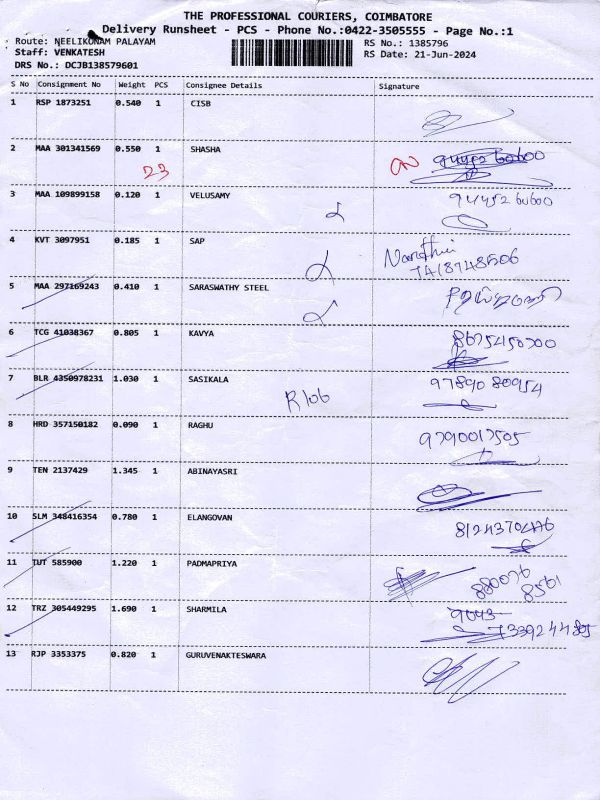 THE PROFESSIONAL COURIERS, COIMBATORE
Delivery Runsheet - PCS - Phone No.:0422-3505555 - Page No.:1
Route: NEELIKONAM PALAYAM RS No.: 1385796
Staff: VENKATESH RS Date: 21-Jun-2024
DRS No.: DCJB138579601
S No Consignment No Weight PCS Consignee Details Signature
1 RSP 1873251 0.540 1 CISB
2 MAA 301341569 0.550 1 SHASHA
23
3 MAA 109899158 0.120 1 VELUSAMY 94452 60600
4 KVT 3097951 0.185 1 SAP
7418748506
5 MAA 297169243 0.410 1 SARASWATHY STEEL
6 TCG 41038367 0.805 1 KAVYA
7 BLR 4350978231 1.030 1 SASIKALA 97890 80954
8 HRD 357150182 0.090 1 RAGHU 9790017505
9 TEN 2137429 1.345 1 ABINAYASRI
10 SLM 348416354 0.780 1 ELANGOVAN
11 TUT 585900 1.220 1 PADMAPRIYA
12 TRZ 305449295 1.690 1 SHARMILA
13 RJP 3353375 0.820 1 GURUVENAKTESWARA